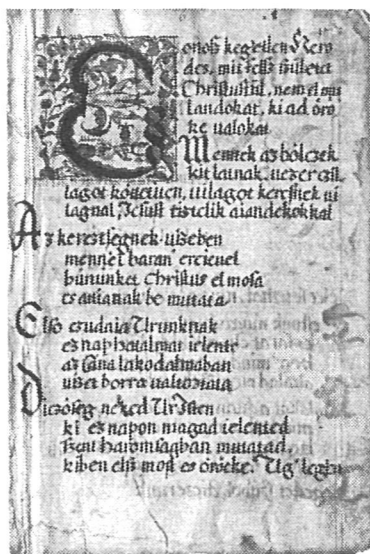 Gonosz kegietlen Hero
des, mit felsz születet
Christustul, nem el mu
landokat, ki ad örö
ke ualokat
Mennek az bölczek
kit latnak, uezer csil
lagot köuetuen, uilagot keresnek ui
lagnal, Jesust tisztelik aiandekokkal
Az keresztsegnek uizeben
mennei baran ereieuel
bününket Christus el mosa
es atianak be mutata
Elso csudaia Urunknak
ez nap hatalmat ielente
az Cana lakodalmaban
uizet borra ualtoztata
Diczöseg neked Ur Isten
ki ez napon magad ielented
Szent haromsagban mutatad,
kiben elsz most es öröcke. Ug legien